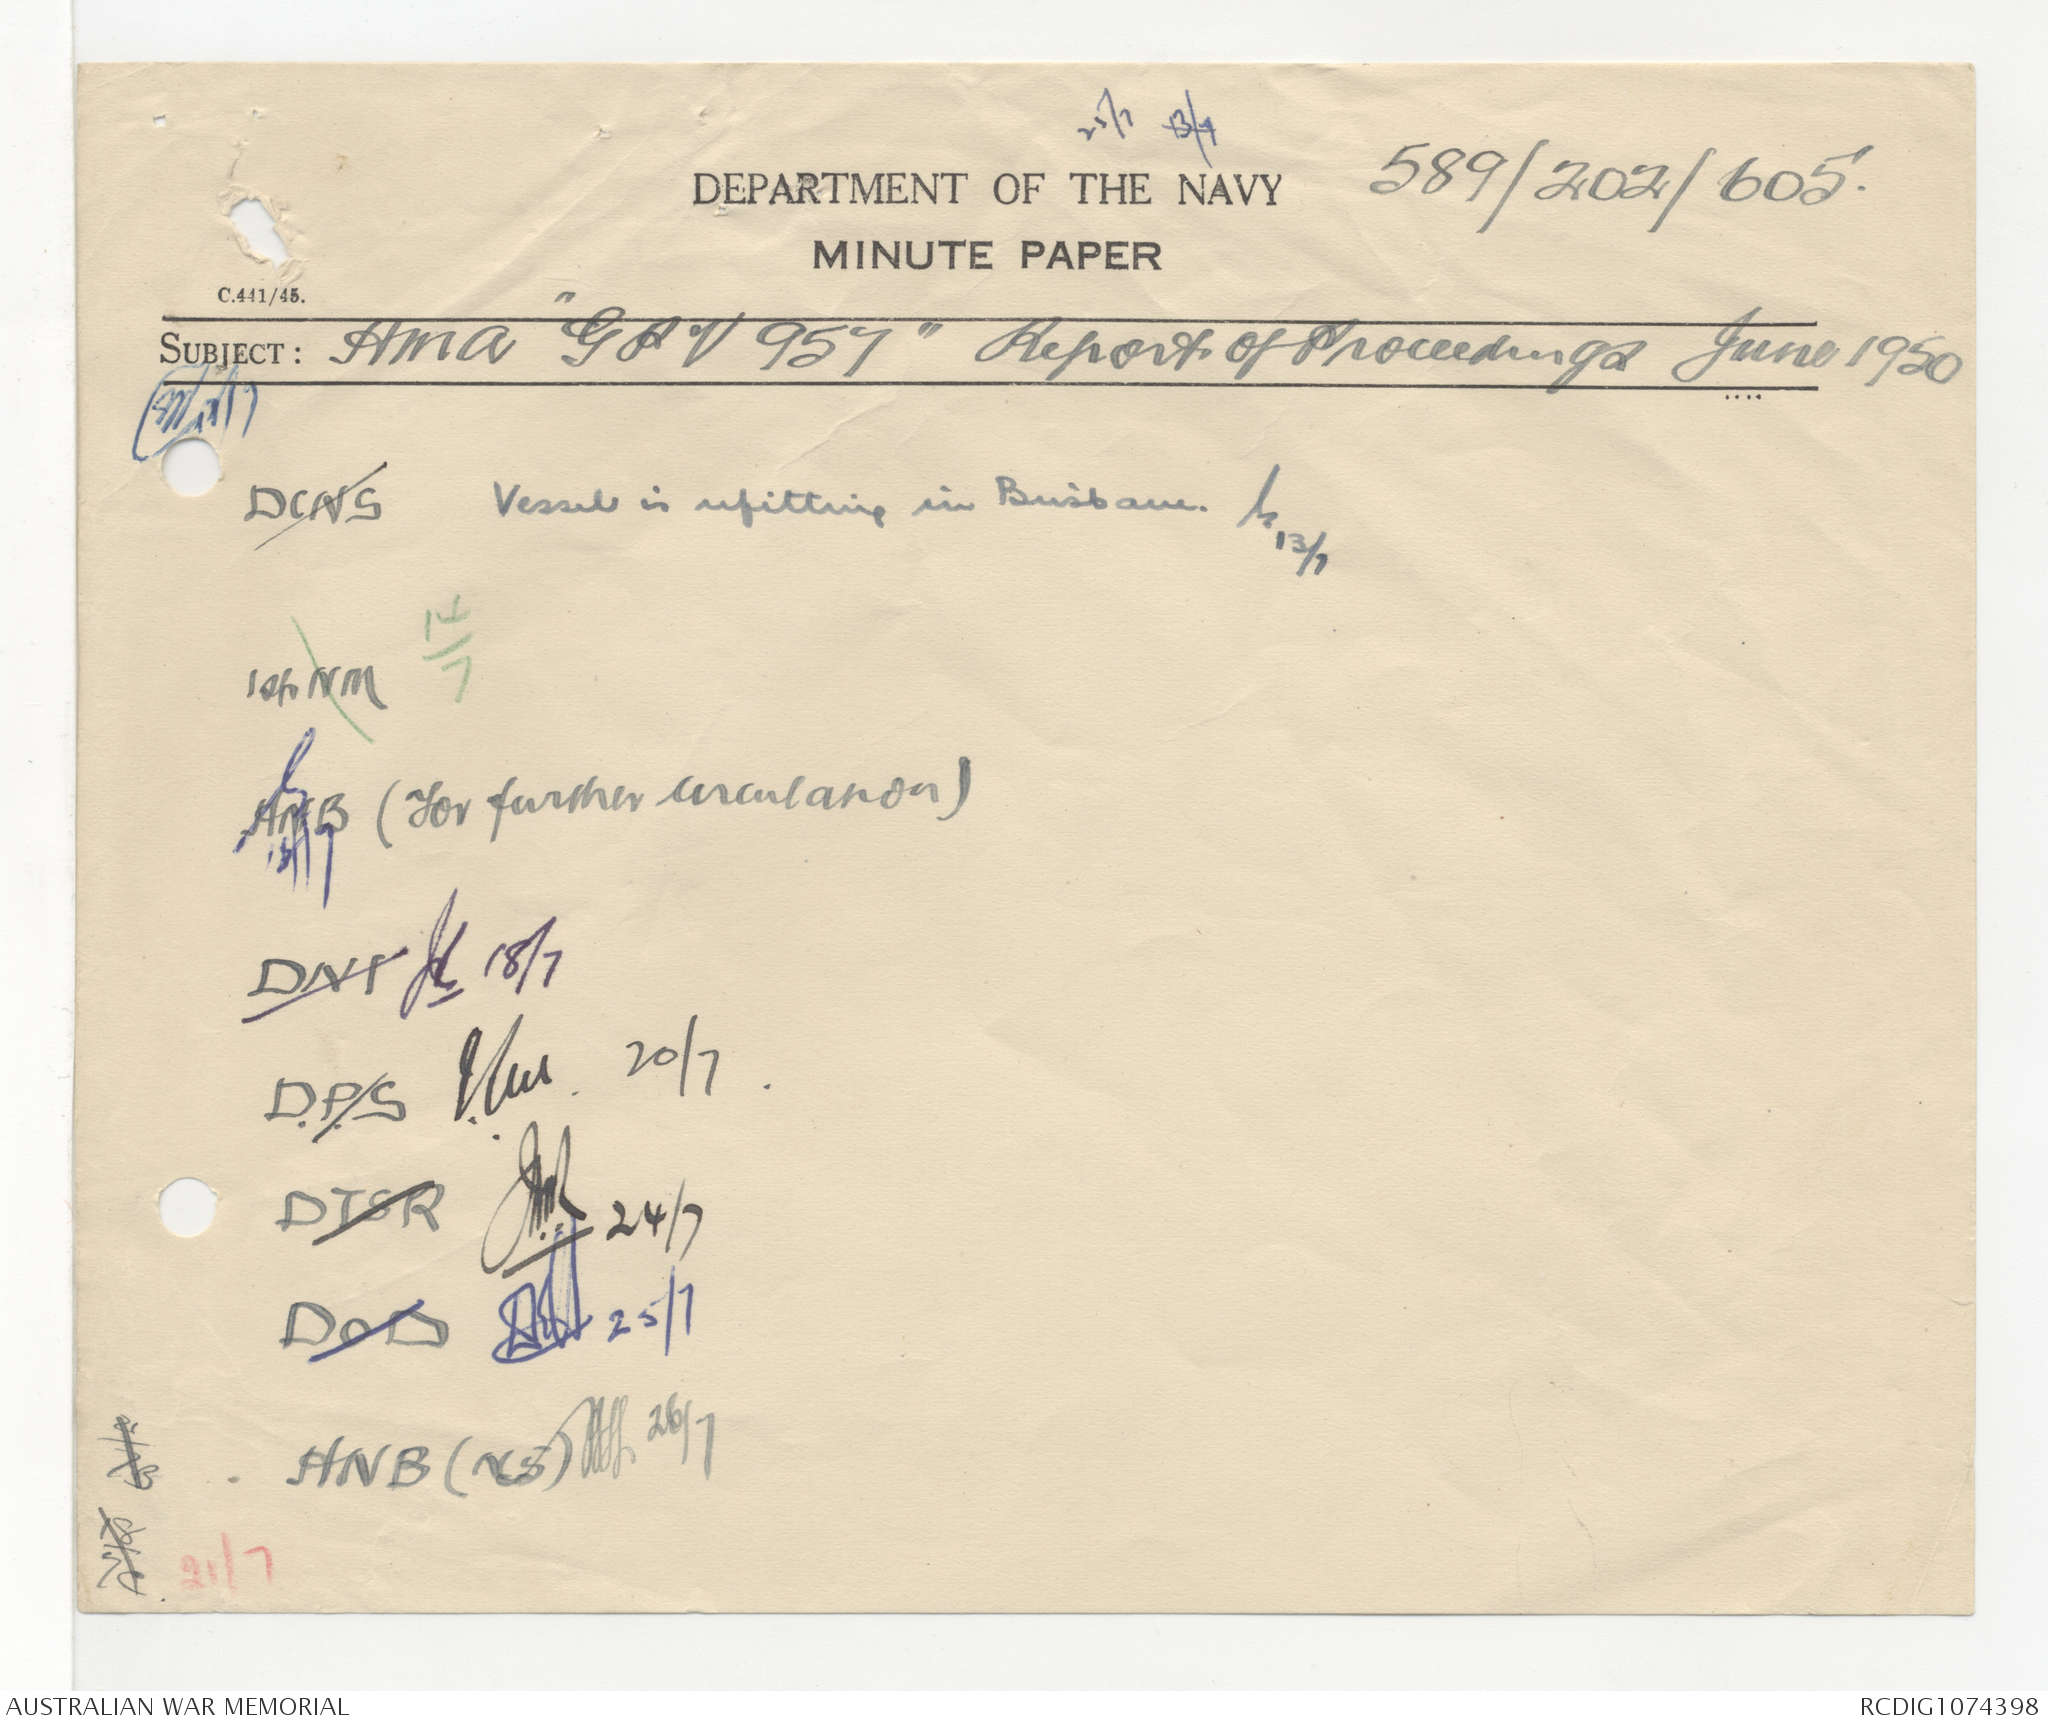 25/7 13/7
DEPARTMENT OF THE NAVY 589/202/605.
MINUTE PAPER
C.441/45.
SUBJECT: HMA "GPV 957" Report of Proceedings June 1950
....
DCNS Vessel is refitting in Brisbane. 13/7
1st NM 14/7
HNB (For further circulation)
DNI 18/7
D.P.S 20/7.
DTSR 24/7
DoD 25/7
HNB (NS) 26/7
21/7
AUSTRALIAN WAR MEMORIAL
RCDIG1074398